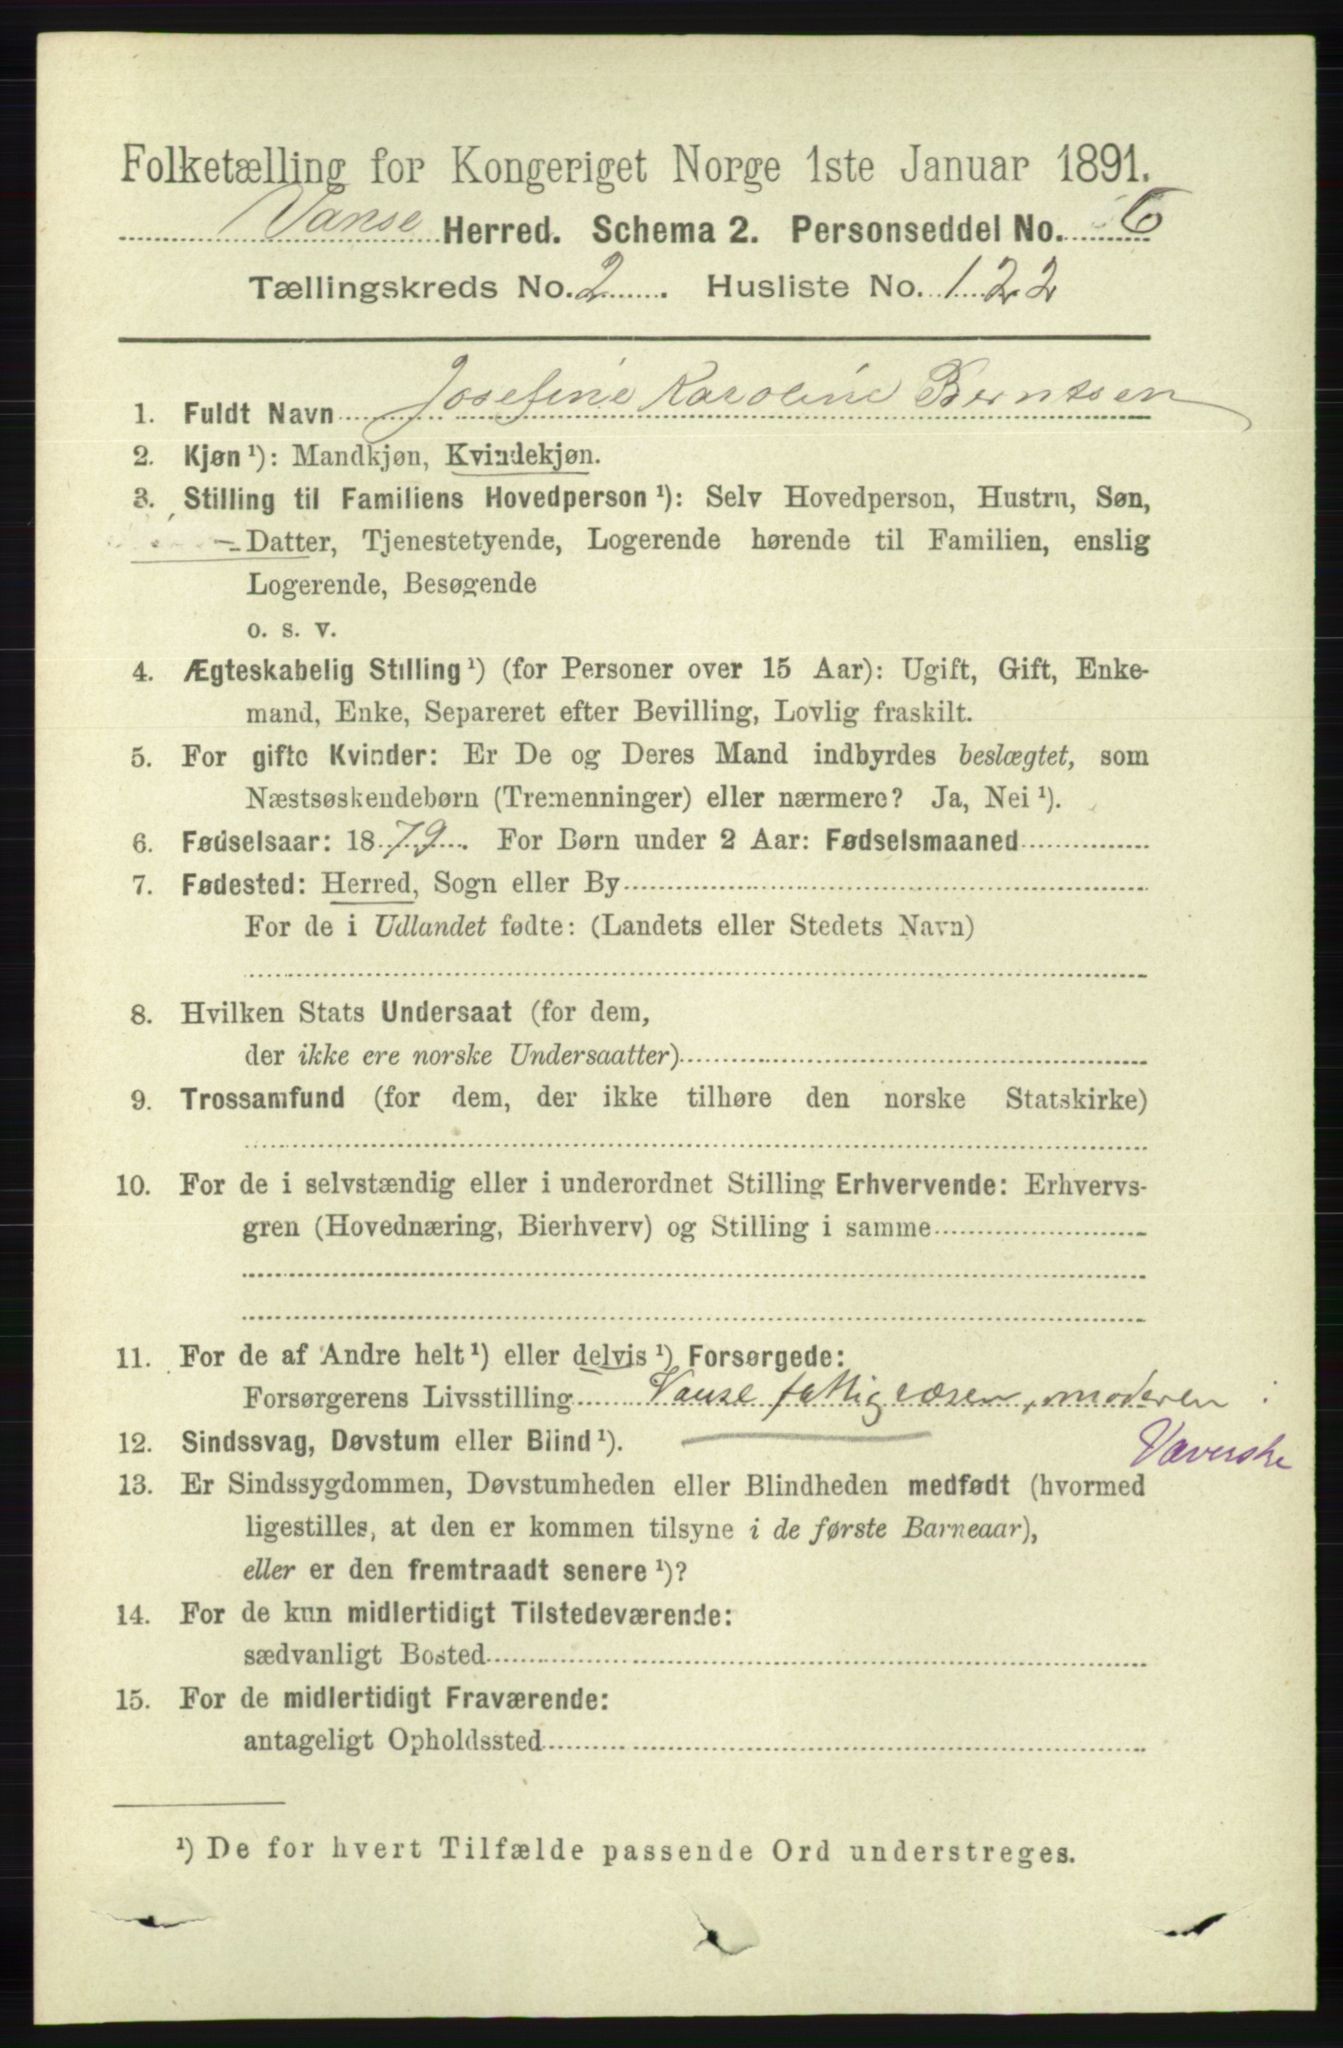 Folketælling for Kongeriget Norge 1ste Januar 1891.
Vanse Herred. Schema 2. Personseddel No. 6
Tællingskreds No. 2. Husliste No. 122
1. Fuldt Navn Josefine Karoline Berntsen
2. Kjøn ¹): Mandkjøn, Kvindekjøn.
3. Stilling til Familiens Hovedperson ¹): Selv Hovedperson, Hustru, Søn,
Datter, Tjenestetyende, Logerende hørende til Familien, enslig
Logerende, Besøgende
o. s. v.
4. Ægteskabelig Stilling ¹) (for Personer over 15 Aar): Ugift, Gift, Enke-
mand, Enke, Separeret efter Bevilling, Lovlig fraskilt.
5. For gifte Kvinder: Er De og Deres Mand indbyrdes beslægtet, som
Næstsøskendebørn (Tremenninger) eller nærmere? Ja, Nei ¹).
6. Fødselsaar: 1879. For Børn under 2 Aar: Fødselsmaaned
7. Fødested: Herred, Sogn eller By
For de i Udlandet fødte: (Landets eller Stedets Navn)
8. Hvilken Stats Undersaat (for dem,
der ikke ere norske Undersaatter)
9. Trossamfund (for dem, der ikke tilhøre den norske Statskirke)
10. For de i selvstændig eller i underordnet Stilling Erhvervende: Erhvervs-
gren (Hovednæring, Bierhverv) og Stilling i samme
11. For de af Andre helt ¹) eller delvis ¹) Forsørgede:
Forsørgerens Livsstilling Vanse fattigvæsen, moderen
Væverske
12. Sindssvag, Døvstum eller Blind ¹).
13. Er Sindssygdommen, Døvstumheden eller Blindheden medfødt (hvormed
ligestilles, at den er kommen tilsyne i de første Barneaar),
eller er den fremtraadt senere ¹)?
14. For de kun midlertidigt Tilstedeværende:
sædvanligt Bosted
15. For de midlertidigt Fraværende:
antageligt Opholdssted
¹) De for hvert Tilfælde passende Ord understreges.